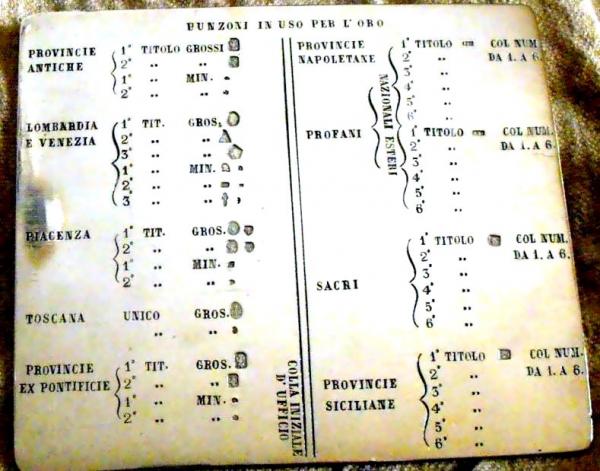 PUNZONI IN USO PER L'ORO
PROVINCIE ANTICHE
1° TITOLO GROSSI
2° ,, ,,
1° ,, MIN.
2° ,, ,,
LOMBARDIA E VENEZIA
1° TIT. GROS.
2° ,, ,,
3° ,, ,,
1° ,, MIN.
2° ,, ,,
3 ,, ,,
PIACENZA
1° TIT. GROS.
2° ,, ,,
1° ,, MIN.
2° ,, ,,
TOSCANA UNICO GROS.
,, ,,
PROVINCIE EX PONTIFICIE
1° TIT. GROS.
2° ,, ,,
1° ,, MIN.
2° ,, ,,
COLLA INIZIALE
D'UFFICIO
PROVINCIE NAPOLETANE
1° TITOLO COL NUM.
2° ,, DA 1. A 6.
3° ,,
4° ,,
5° ,,
6° ,,
NAZIONALI ESTERI
PROFANI
1° TITOLO COL NUM.
2° ,, DA 1. A 6.
3° ,,
4° ,,
5° ,,
6° ,,
SACRI
1° TITOLO COL NUM.
2° ,, DA 1. A 6.
3° ,,
4° ,,
5° ,,
6° ,,
PROVINCIE SICILIANE
1° TITOLO COL NUM.
2° ,, DA 1. A 6.
3° ,,
4° ,,
5° ,,
6° ,,